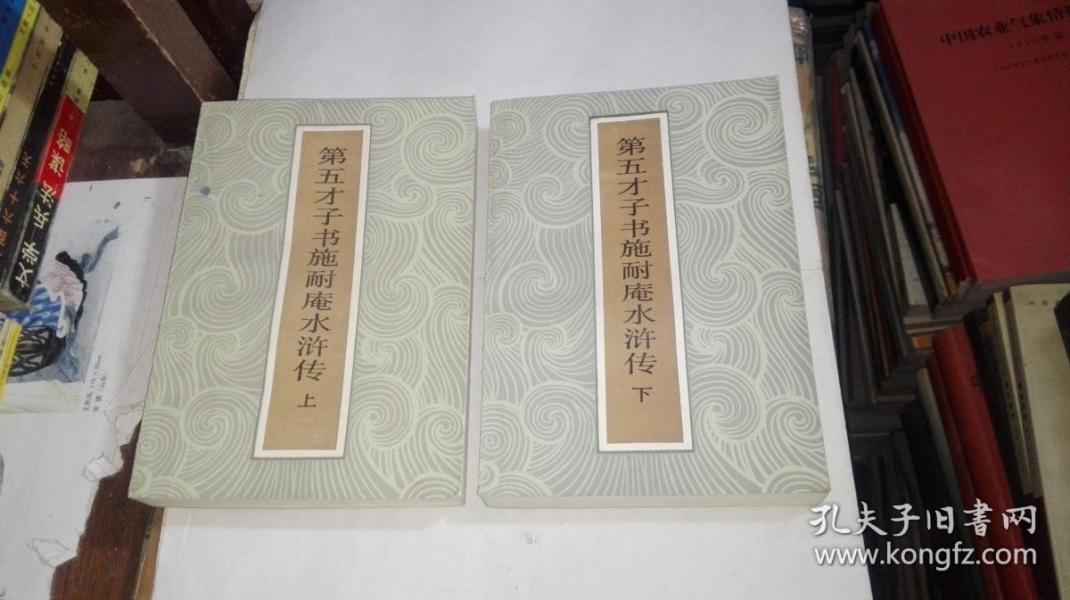 第五才子书施耐庵水浒传
上
第五才子书施耐庵水浒传
下
文学
知识
谋略
中国农业气象情
孔夫子旧書网
www.kongfz.com